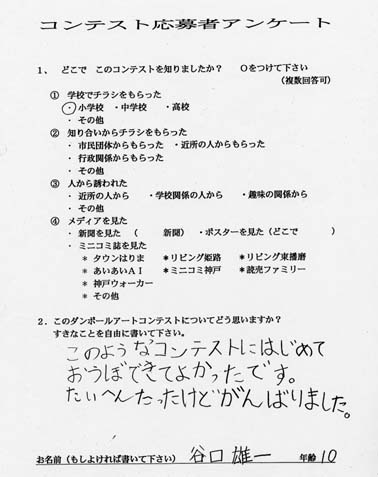 コンテスト応募者アンケート
1、 どこで このコンテストを知りましたか? Oをつけて下さい
(複数回答可)
① 学校でチラシをもらった
・小学校 ・中学校 ・高校
・その他
② 知り合いからチラシをもらった
・市民団体からもらった ・近所の人からもらった
・行政関係からもらった
・その他
③ 人から誘われた
・近所の人から ・学校関係の人から ・趣味の関係から
・その他
④ メディアを見た
・新聞を見た ( 新聞) ・ポスターを見た(どこで )
・ミニコミ誌を見た
* タウンはりま *リビング姫路 *リビング東播磨
* あいあいAI *ミニコミ神戸 *読売ファミリー
* 神戸ウォーカー
* その他
2. このダンボールアートコンテストについてどう思いますか?
すきなことを自由に書いて下さい。
このようなコンテストにはじめて
おうぼできてよかったです。
たいへんたったけどがんばりました。
お名前(もしよければ書いて下さい) 谷口 雄一 年齢 10